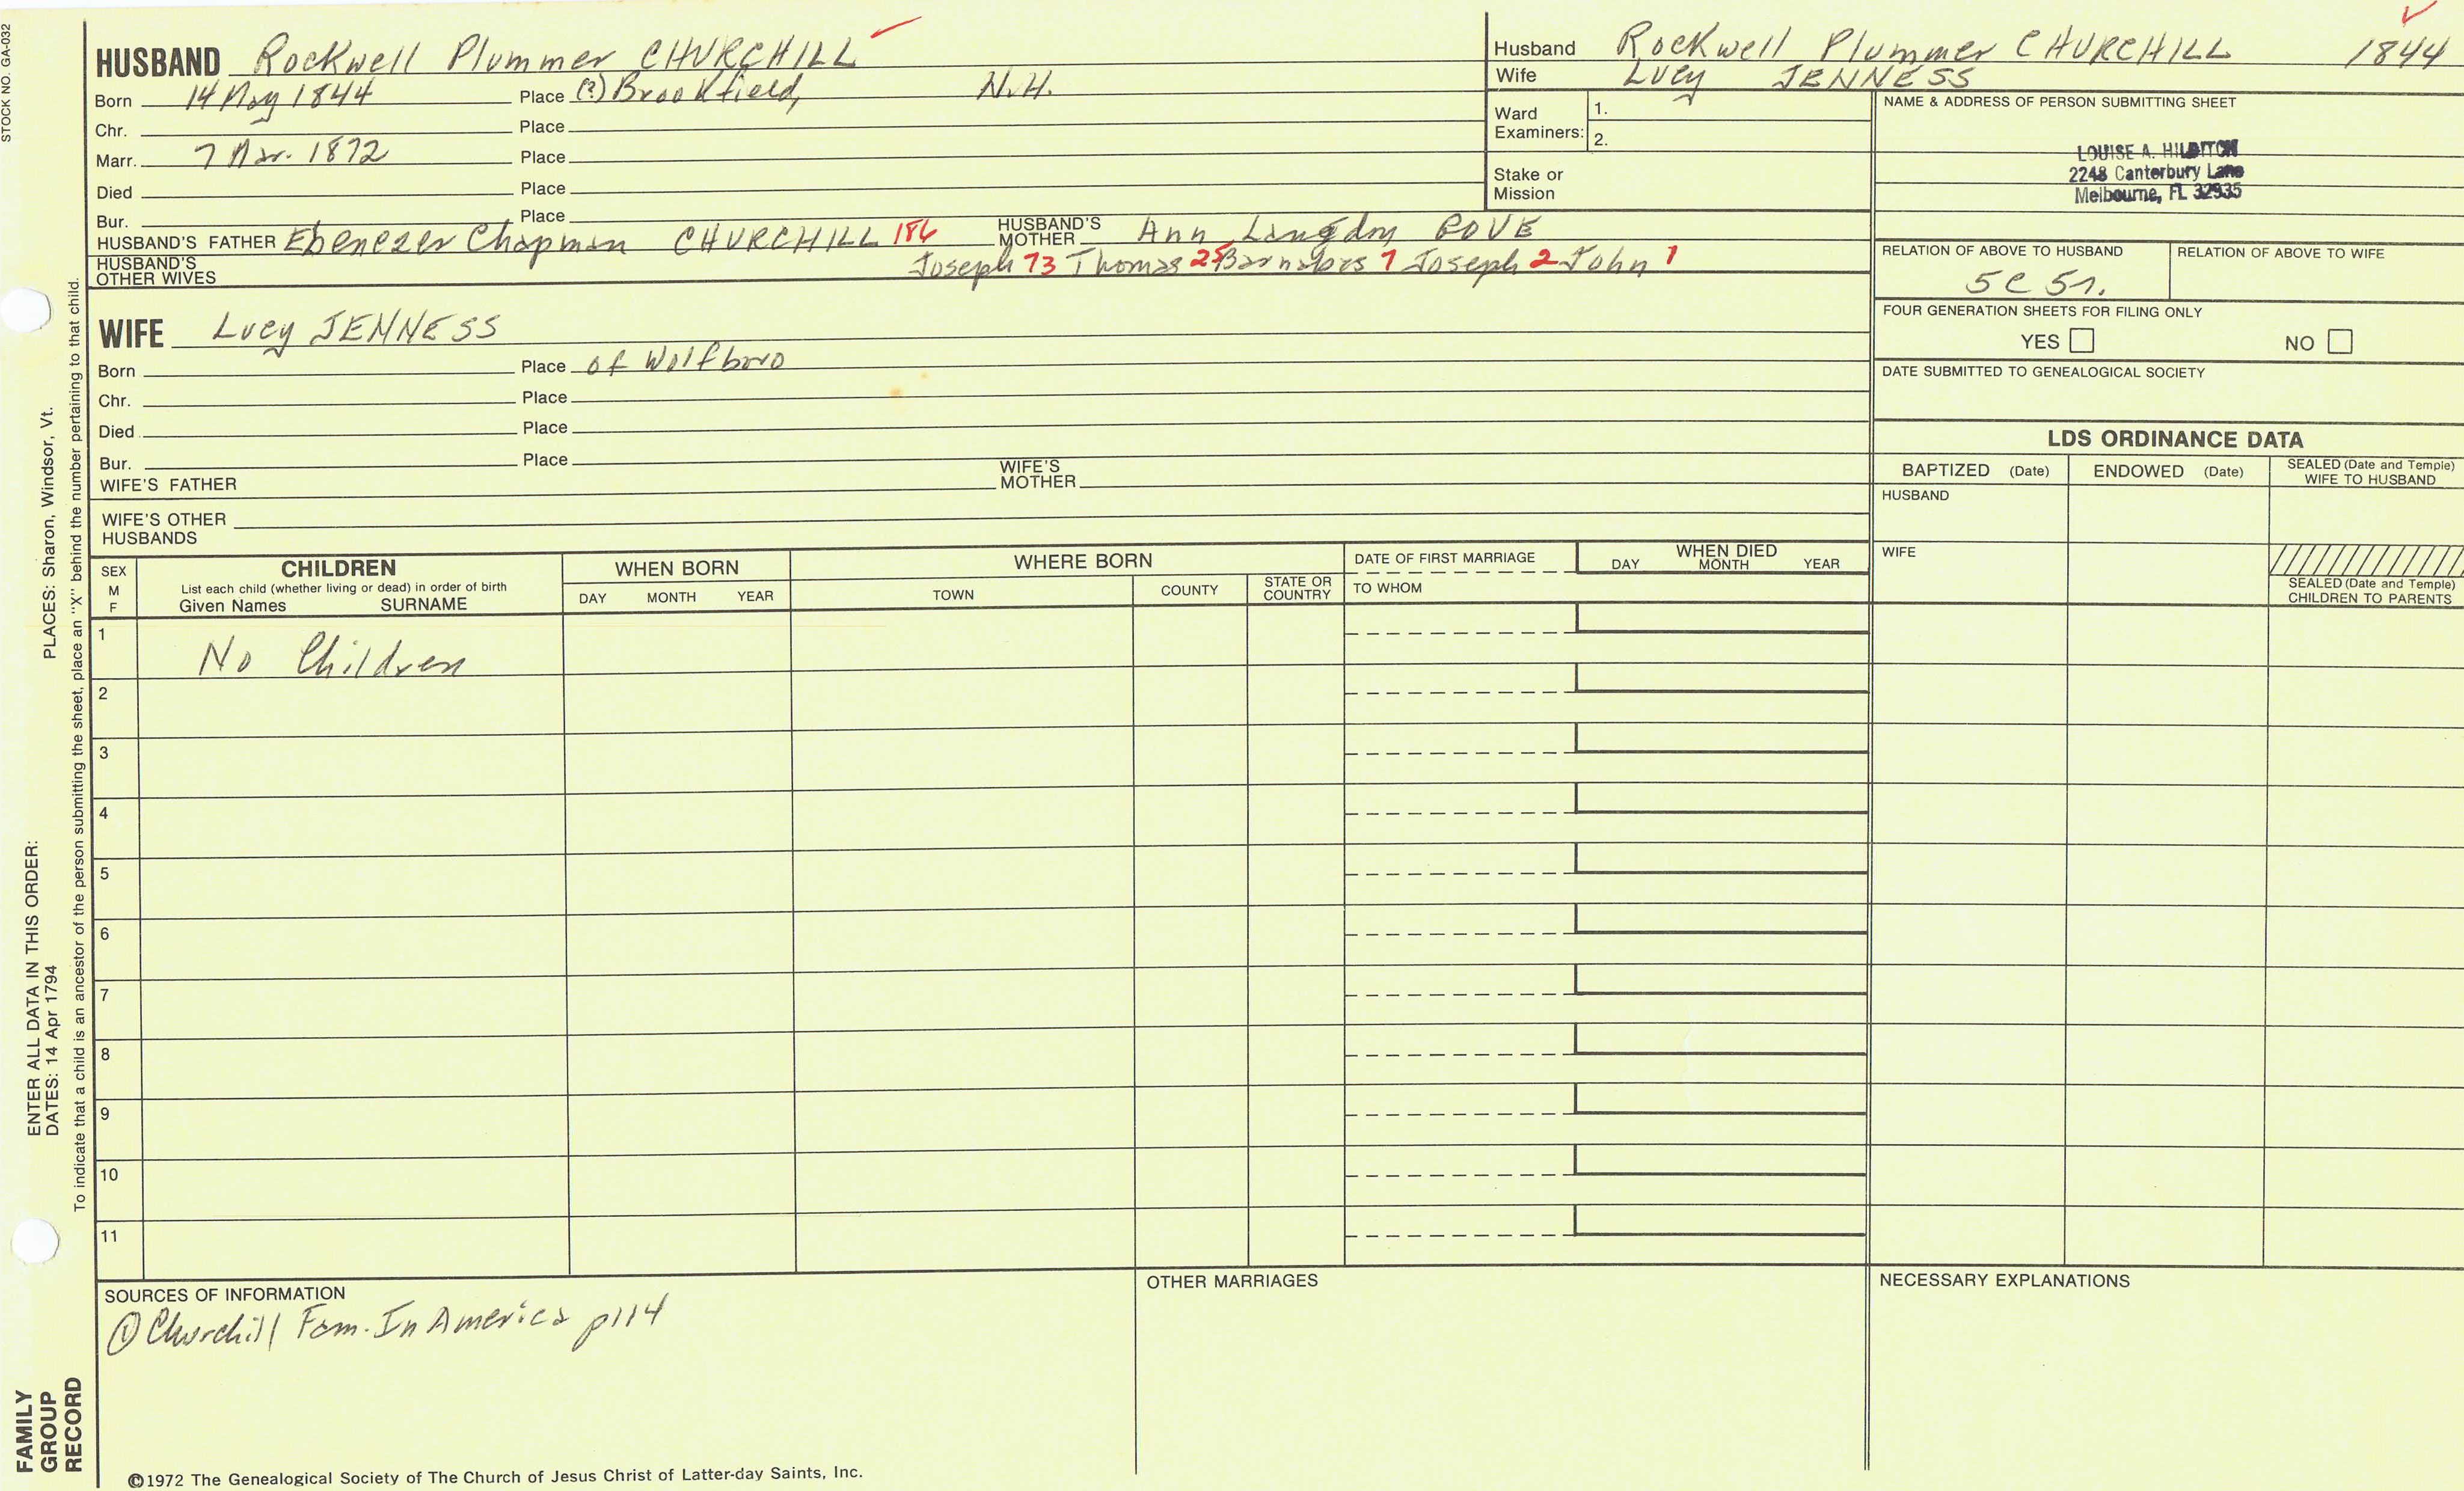 STOCK NO. GA-032
HUSBAND Rockwell Plummer CHURCHILL
Born 14 May 1844 Place (?) Brookfield, N.H.
Chr. Place
Marr. 7 Mar. 1872 Place
Died Place
Bur. Place
HUSBAND'S FATHER Ebenezer Chapman CHURCHILL 186 HUSBAND'S MOTHER Ann Langdon
HUSBAND'S OTHER WIVES Joseph 73 Thomas 25 Barnabas 7 Joseph 2 John 1
Husband Rockwell Plummer CHURCHILL 1844
Wife Lucy JENNESS
Ward Examiners: 1.
2.
Stake or Mission
NAME & ADDRESS OF PERSON SUBMITTING SHEET
LOUISE A. HILDITCH
2248 Canterbury Lane
Melbourne, FL 32935
RELATION OF ABOVE TO HUSBAND RELATION OF ABOVE TO WIFE
5C 5r.
FOUR GENERATION SHEETS FOR FILING ONLY
YES NO
DATE SUBMITTED TO GENEALOGICAL SOCIETY
WIFE Lucy JENNESS
Born Place of Wolfboro
Chr. Place
Died Place
Bur. Place
WIFE'S FATHER WIFE'S MOTHER
WIFE'S OTHER HUSBANDS
LDS ORDINANCE DATA
BAPTIZED (Date) ENDOWED (Date) SEALED (Date and Temple) WIFE TO HUSBAND
HUSBAND
WIFE
SEALED (Date and Temple) CHILDREN TO PARENTS
SEX M F
CHILDREN
List each child (whether living or dead) in order of birth
Given Names SURNAME
WHEN BORN
DAY MONTH YEAR
WHERE BORN
TOWN COUNTY STATE OR COUNTRY
DATE OF FIRST MARRIAGE
TO WHOM
WHEN DIED
DAY MONTH YEAR
1 No Children
2
3
4
5
6
7
8
9
10
11
SOURCES OF INFORMATION
① Churchill Fam. In America p114
OTHER MARRIAGES
NECESSARY EXPLANATIONS
©1972 The Genealogical Society of The Church of Jesus Christ of Latter-day Saints, Inc.
FAMILY GROUP RECORD
ENTER ALL DATA IN THIS ORDER:
DATES: 14 Apr 1794 PLACES: Sharon, Windsor, Vt.
To indicate that a child is an ancestor of the person submitting the sheet, place an "X" behind the number pertaining to that child.